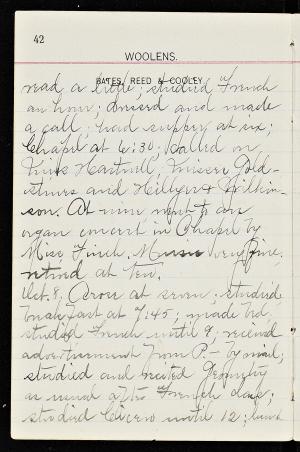 42
WOOLENS.
BATES, REED & COOLEY.
read a little; studied French
an hour; dressed and made
a call; had supper at six;
Chapel at 6:30; called on
Miss Hartwell, Misses Gold-
and Hillyer & Wilkin-
son. At nine went to an
organ concert in Chapel by
Miss Finch. Music very fine,
retired at ten.
Oct. 8. Arose at seven; studied
breakfast at 7:45; made bed,
studied French until 9; received
advertisement from P.- by mail;
studied and recited Geometry
as usual also French class;
studied Cicero until 12; lunch